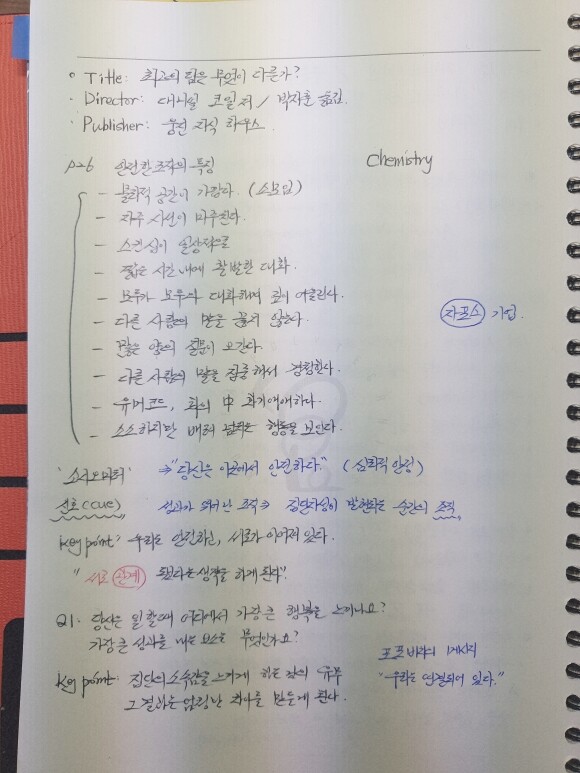 • Title: 최고의 팀은 무엇이 다른가?
• Director: 대니얼 코일 저 / 박지훈 옮김.
• Publisher: 웅진 지식 하우스.
P26 안전한 조직의 특징
Chemistry
- 물리적 공간이 가깝다. (소모임)
- 자주 시선이 마주친다.
- 스킨십이 일상적으로
- 짧은 시간내에 활발한 대화.
- 모두가 모두와 대화하며 깊이 어울린다.
- 다른 사람의 말을 끊지 않는다.
자포스 기업.
- 많은 양의 질문이 오간다.
- 다른 사람의 말을 집중해서 경청한다.
- 유머코드, 회의 中 화기애애하다.
- 소소하지만 배려 넘치는 행동을 보인다.
'소시오미터' → "당신은 이곳에서 안전하다." (심리적 안정)
신호(cue) 성과가 뛰어난 조직 → 집단지성이 발현되는 순간의 조직
Key point: 우리는 안전하고, 서로가 이어져 있다.
" 서로 관계 됐다는 생각을 하게 된다".
Q1. 당신은 일 할때 어디에서 가장 큰 행복을 느끼나요?
가장 큰 성과를 내는 요소는 무엇인가요?
포포비치의 메시지
Key point: 집단의 소속감을 느끼게 하는 것의 유무
"우리는 연결되어 있다."
그 결과는 엄청난 차이를 만들게 된다.